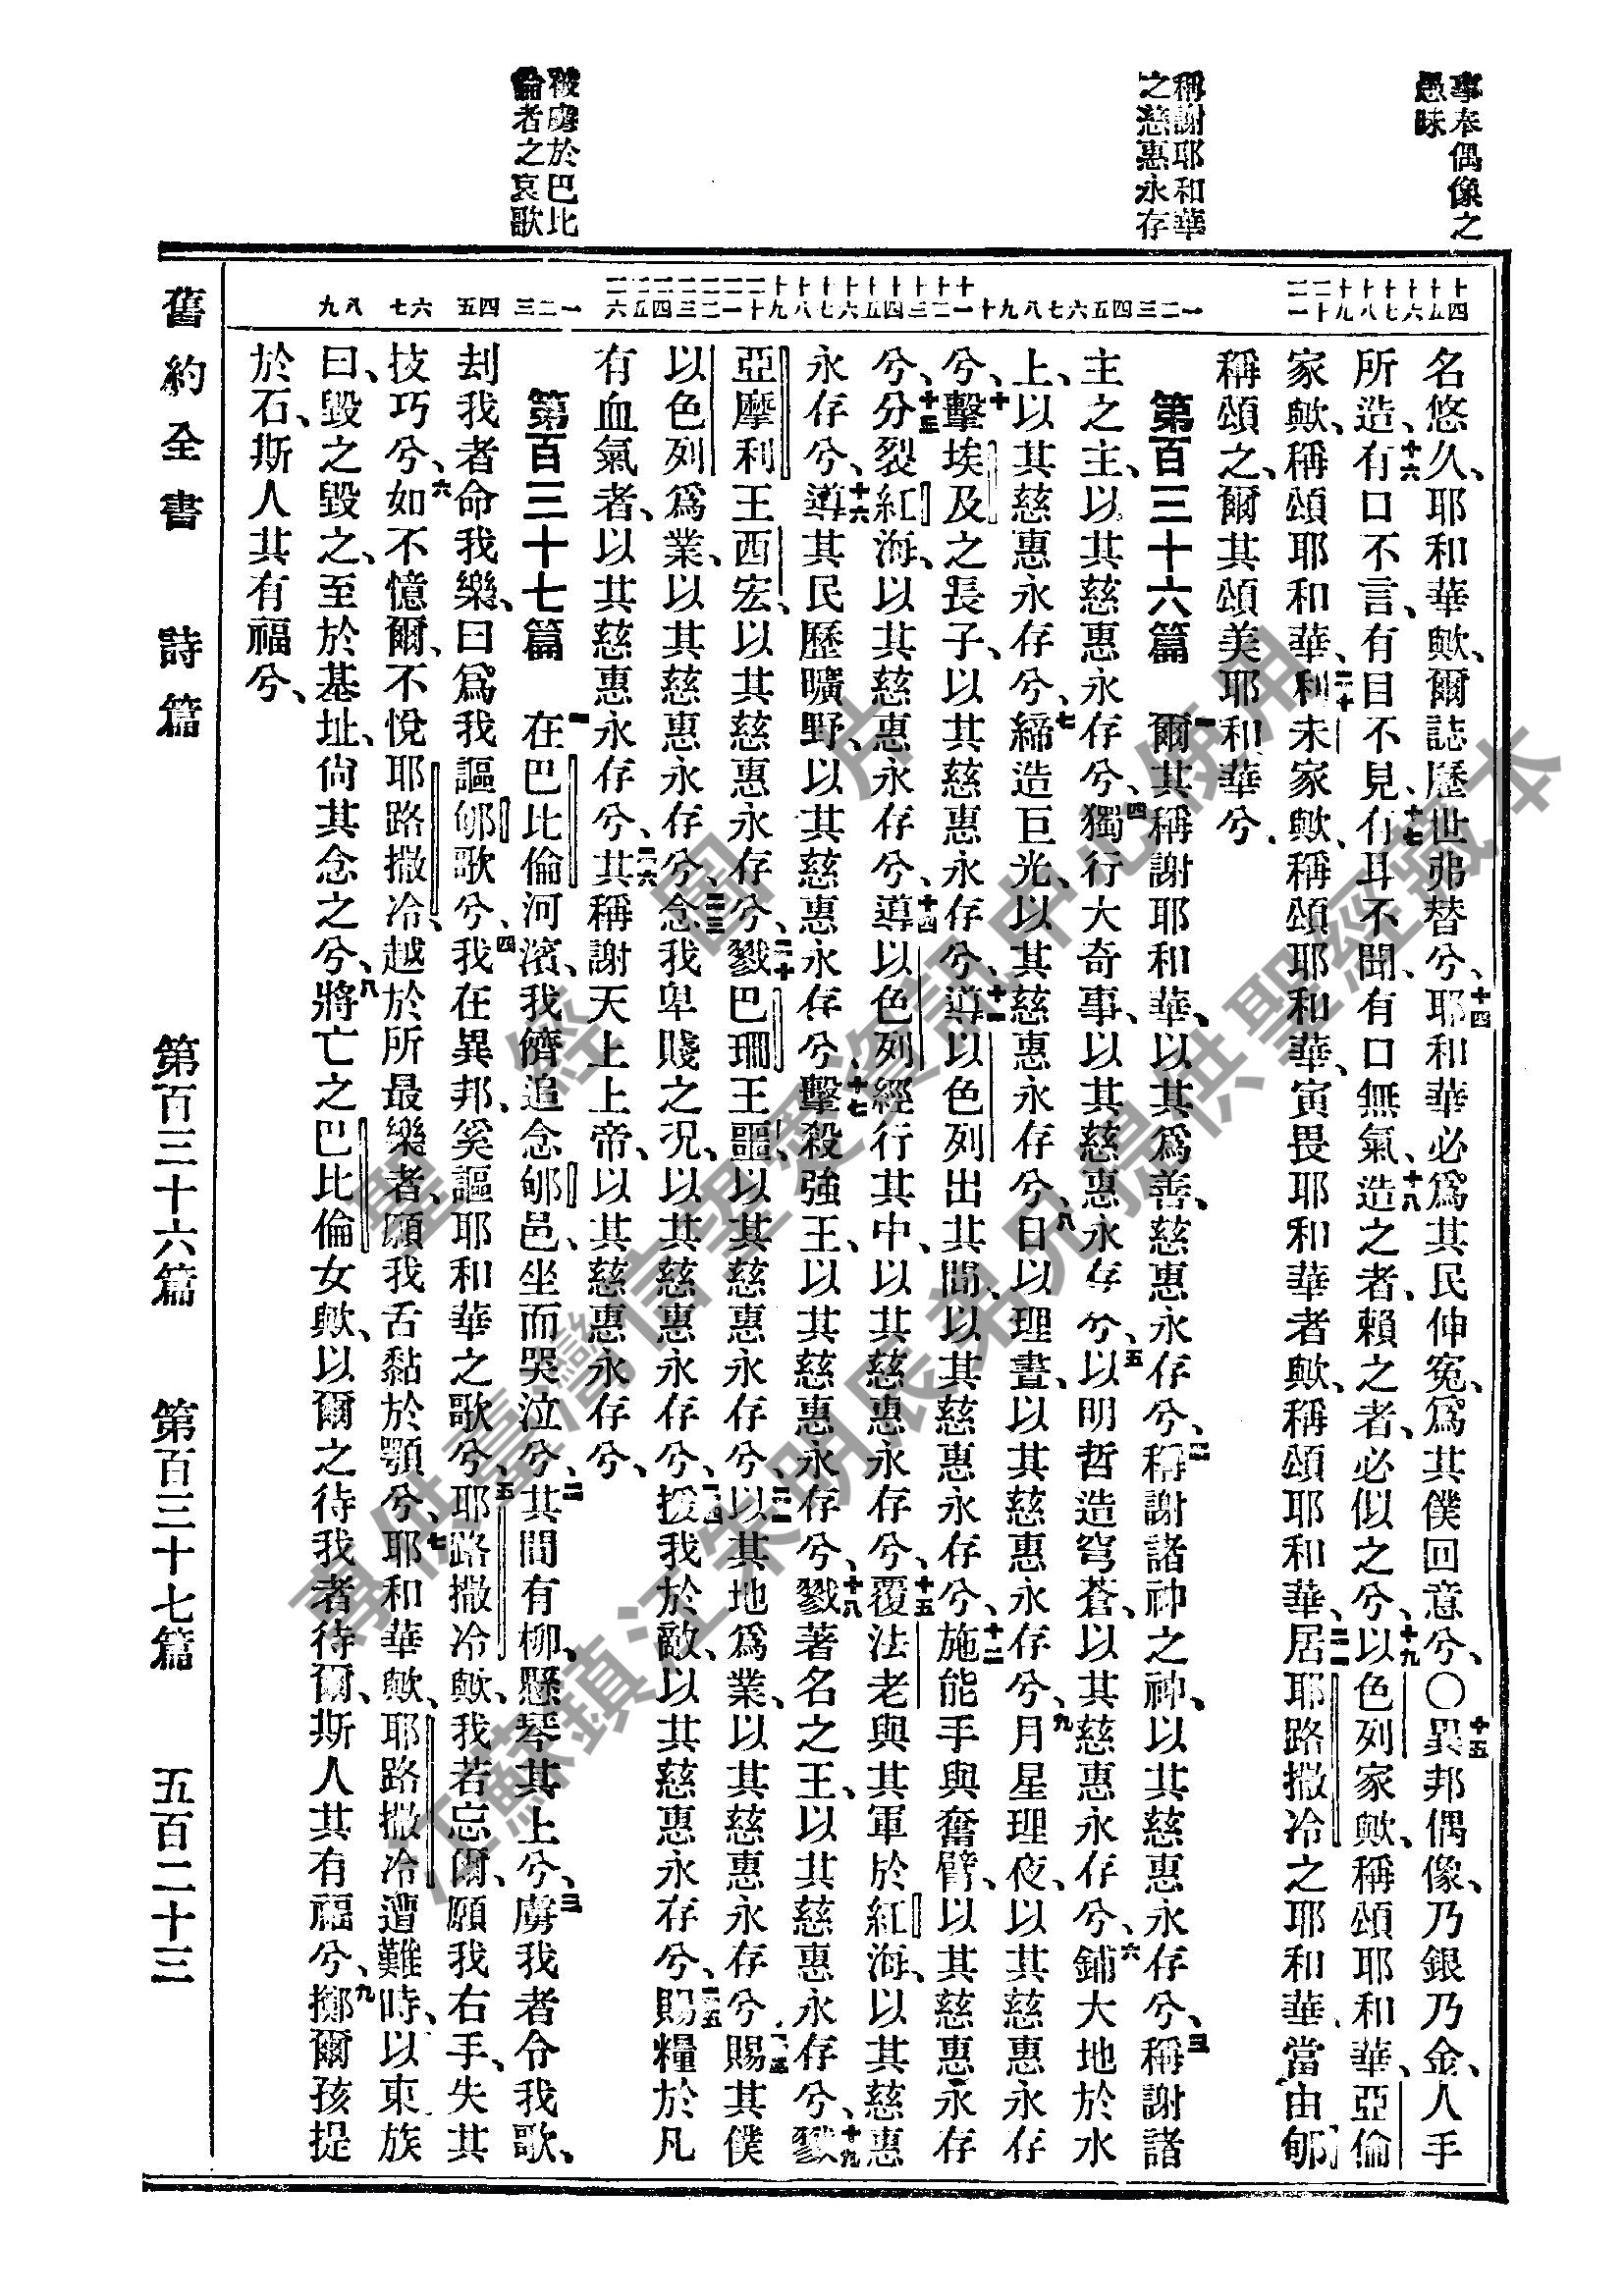 事奉偶像之
愚昧
稱謝耶和華
之慈惠永存
被虜於巴比
倫者之哀歌
十四 十五 十六 十七 十八 十九 二十 二一
一 二 三 四 五 六 七 八 九 十 十一 十二 十三 十四 十五 十六 十七 十八 十九 二十 二一 二二 二三 二四 二五 二六
一 二 三 四 五 六 七 八 九
名悠久、耶和華歟、爾誌歷世弗替兮、十四耶和華必爲其民伸冤、爲其僕回意兮、○十五異邦偶像、乃銀乃金、人手
所造、十六有口不言、有目不見、十七有耳不聞、有口無氣、十八造之者、賴之者、必似之兮、十九以色列家歟、稱頌耶和華、亞倫
家歟、稱頌耶和華、二十利未家歟、稱頌耶和華、寅畏耶和華者歟、稱頌耶和華、二一居耶路撒冷之耶和華、當由郇
稱頌之、爾其頌美耶和華兮、
第百三十六篇 一爾其稱謝耶和華、以其爲善、慈惠永存兮、二稱謝諸神之神、以其慈惠永存兮、三稱謝諸
主之主、以其慈惠永存兮、四獨行大奇事、以其慈惠永存兮、五以明哲造穹蒼、以其慈惠永存兮、六鋪大地於水
上、以其慈惠永存兮、七締造巨光、以其慈惠永存兮、八日以理晝、以其慈惠永存兮、九月星理夜、以其慈惠永存
兮、十擊埃及之長子、以其慈惠永存兮、十一導以色列出其間、以其慈惠永存兮、十二施能手與奮臂、以其慈惠永存
兮、十三分裂紅海、以其慈惠永存兮、十四導以色列經行其中、以其慈惠永存兮、十五覆法老與其軍於紅海、以其慈惠
永存兮、十六導其民歷曠野、以其慈惠永存兮、十七擊殺強王、以其慈惠永存兮、十八戮著名之王、以其慈惠永存兮、十九戮
亞摩利王西宏、以其慈惠永存兮、二十戮巴珊王噩、以其慈惠永存兮、二一以其地爲業、以其慈惠永存兮、二二賜其僕
以色列爲業、以其慈惠永存兮、二三念我卑賤之况、以其慈惠永存兮、二四援我於敵、以其慈惠永存兮、二五賜糧於凡
有血氣者、以其慈惠永存兮、二六其稱謝天上上帝、以其慈惠永存兮、
第百三十七篇 一在巴比倫河濱、我儕追念郇邑、坐而哭泣兮、二其間有柳、懸琴其上兮、三虜我者令我歌、
刦我者命我樂、曰爲我謳郇歌兮、四我在異邦、奚謳耶和華之歌兮、五耶路撒冷歟、我若忘爾、願我右手、失其
技巧兮、六如不憶爾、不悅耶路撒冷、越於所最樂者、願我舌黏於顎兮、七耶和華歟、耶路撒冷遭難時、以東族
曰、毀之毀之、至於基址、尚其念之兮、八將亡之巴比倫女歟、以爾之待我者待爾、斯人其有福兮、九擲爾孩提
於石、斯人其有福兮、
舊約全書 詩篇 第百三十六篇 第百三十七篇 五百二十三
聖經圖片
專供臺灣信望愛資訊中心使用
江蘇鎮江朱明辰弟兄提供聖經藏本